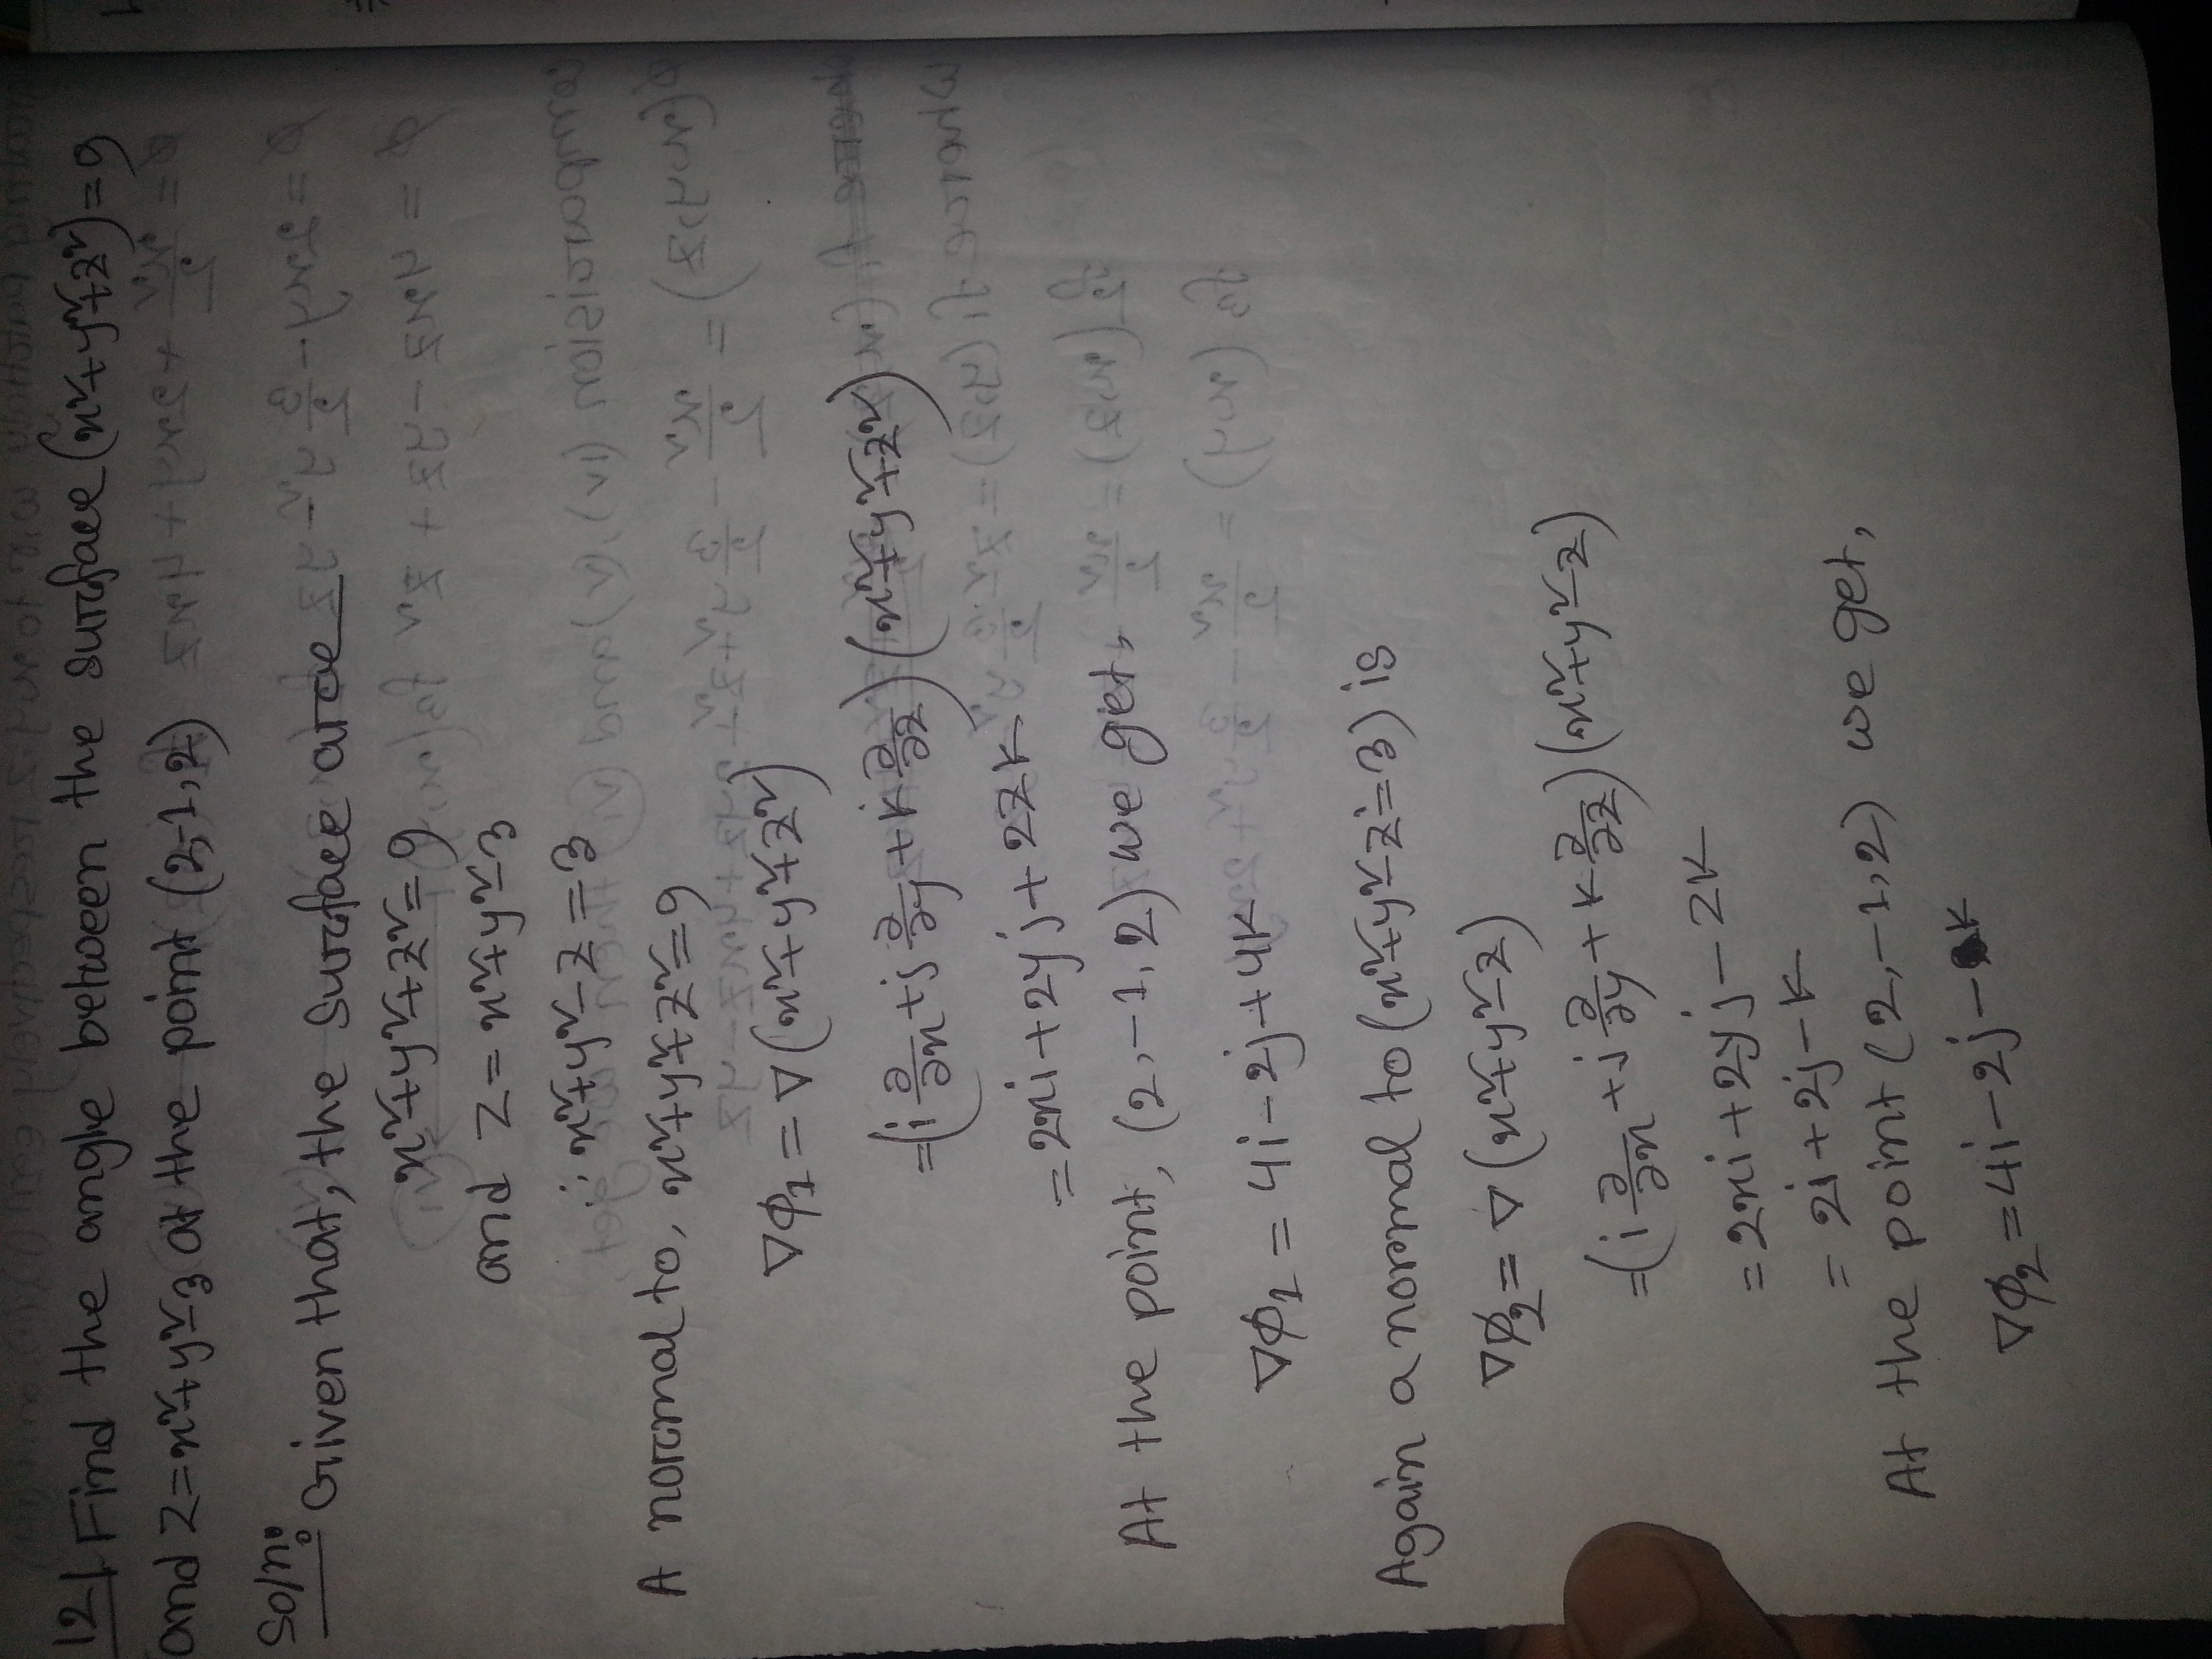 12| Find the angle between the surface (x²+y²+z²)=9
and z=x²+y²-3 at the point (2,-1,2)
Soln:
Given that, the surface are
x²+y²+z²=9
and z=x²+y²-3
∴ x²+y²-z=3
A normal to, x²+y²+z²=9
∇φ₁=∇(x²+y²+z²)
=(i ∂/∂x+j ∂/∂y+k ∂/∂z)(x²+y²+z²)
=2xi+2yj+2zk
At the point, (2,-1,2) we get,
∇φ₁=4i-2j+4k
Again a normal to (x²+y²-z=3) is
∇φ₂=∇(x²+y²-z)
=(i ∂/∂x+j ∂/∂y+k ∂/∂z)(x²+y²-z)
=2xi+2yj-2k
=2i+2j-k
At the point (2,-1,2) we get,
∇φ₂=4i-2j-k